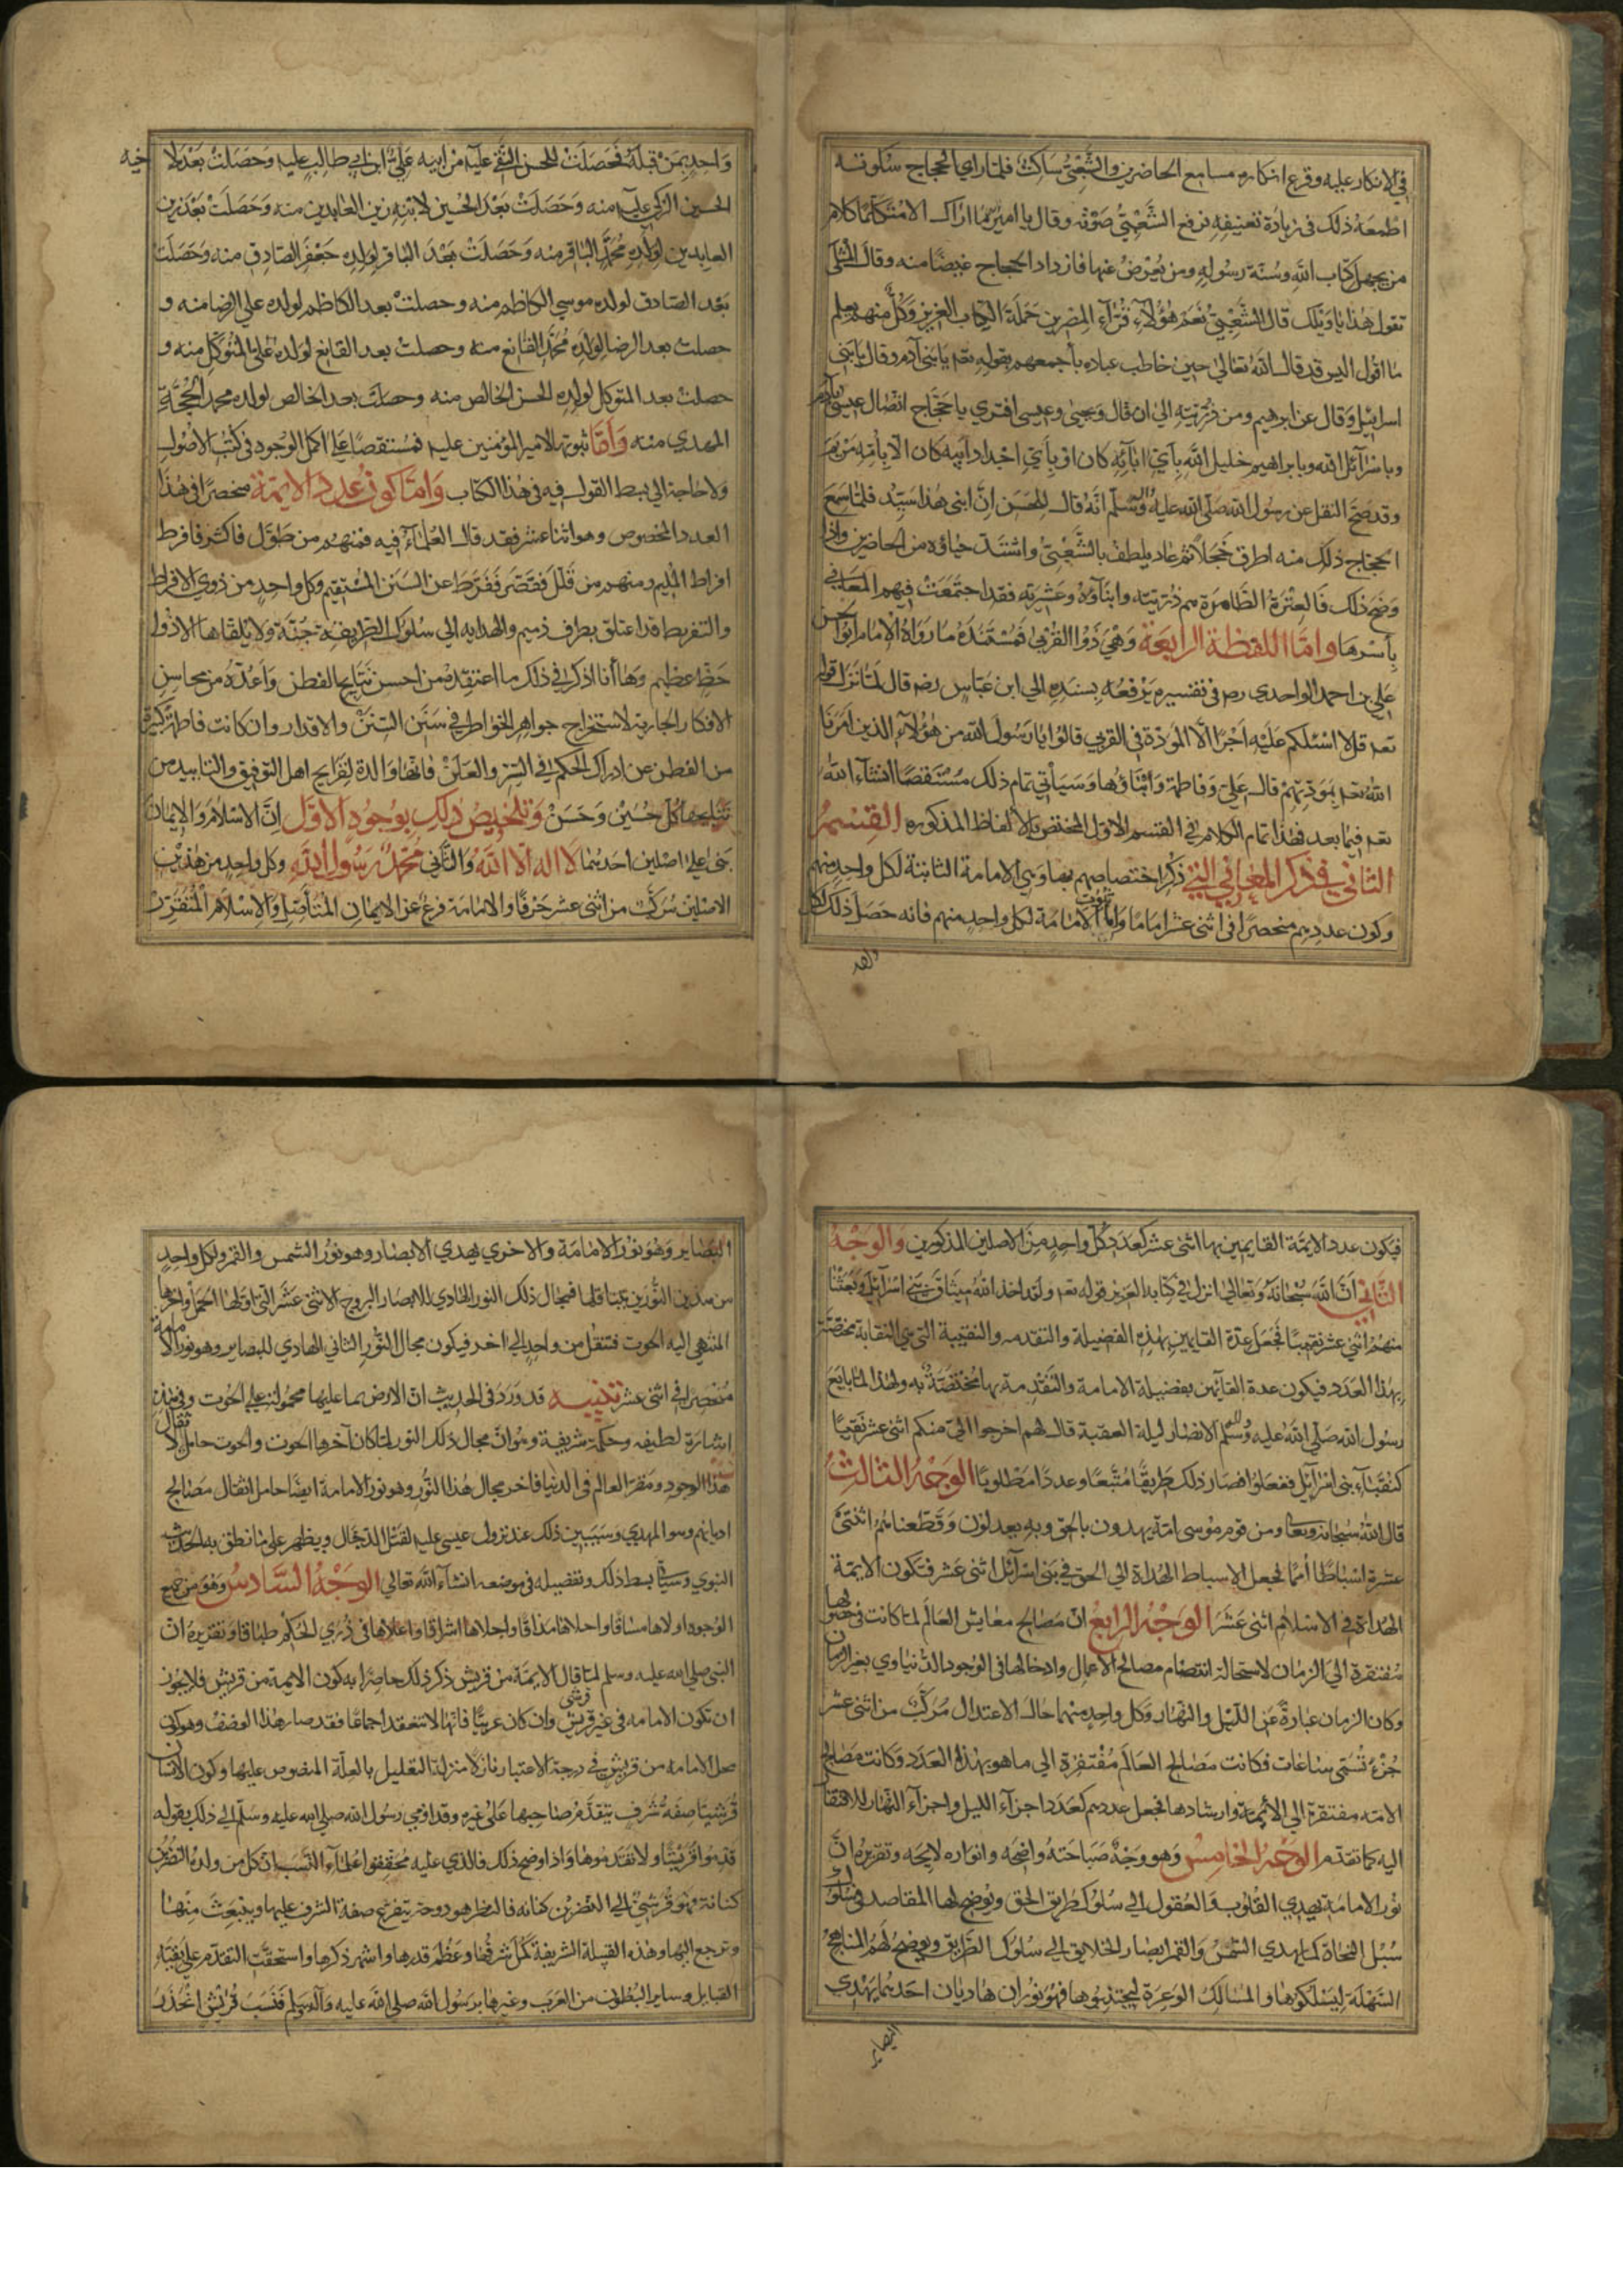 في الانكار عليه وقرع انكاره مسامع الحاضرين والشعبي ساكت فلما راي الحجاج سكوته
اطمعه ذلك في زيادة تعنيفه فرفع الشعبي صوته وقال يا امير ما اراك الا متكلما كلام
من يجهل كتاب الله وسنة رسوله ومن يعرض عنها فازداد الحجاج غيضا منه وقال المثلي
تقول هذا يا ويلك قال الشعبي نعم هؤلاء قراء المصرين حملة الكتاب العزيز وكل منهم يعلم
ما اقول اليس قد قال الله تعالي حين خاطب عباده بأجمعهم بقوله تعم يا بني آدم وقال يا بني
اسرائيل وقال عن ابرهيم ومن ذريته الي ان قال ويحيى وعيسى افترى يا حجاج اتصال عيسى بآدم
وباسرآئل الله وبابراهيم خليل الله بأي ابآئه كان او بأي اجداد ابيه كان الا بأمه مريم
وقد صح النقل عن رسول الله صلى الله عليه وآله وسلم انه قال للحسن ان ابني هذا سيد فلما سمع
الحجاج ذلك منه اطرق خجلا ثم عاد يلطف بالشعبي واشتد حياؤه من الحاضرين واذا
وضح ذلك فالعترة الطاهرة هم ذريته وابنآؤه وعشرته فقد اجتمعت فيهم المعاني
بأسرها واما اللفظة الرابعة وهي ذووا القربى فمستنده ما رواه الامام ابو الحسن
علي بن احمد الواحدي رح في تفسيره يرفعه بسنده الي ابن عباس رضه قال لما نزل قوله
تعم قل لا اسئلكم عليه اجرا الا المودة في القربي قالوا يا رسول الله من هؤلآء الذين امرنا
الله تعم بمودتهم قال علي وفاطمة وابناؤها وسيأتي تمام ذلك مستقصا انشآء الله
تعم فيما بعد فهذا تمام الكلام في القسم الاول المختص بالالفاظ المذكوره القسم
الثاني في ذكر المعاني التي ذكر اختصاصهم بها وهي الامامة الثابتة لكل واحد منهم
وكون عددهم منحصرا في اثني عشر اماما واما ثبوت الامامة لكل واحد منهم فانه حصل ذلك لكل
واحد ممن قبله فحصلت للحسن التقي عليه من ابيه علي ابن ابي طالب عليه وحصلت بعد لاخيه
الحسين الزكي عليه منه وحصلت بعد الحسين لابنه زين العابدين منه وحصلت بعد زين
العابدين لولده محمد الباقر منه وحصلت بعد الباقر لولده جعفر الصادق منه وحصلت
بعد الصادق لولده موسي الكاظم منه وحصلت بعد الكاظم لولده علي الرضا منه و
حصلت بعد الرضا لولده محمد القانع منه وحصلت بعد القانع لولده علي المتوكل منه و
حصلت بعد المتوكل لولده الحسن الخالص منه وحصلت بعد الخالص لولده محمد الحجة
المهدي منه واما ثبوتها لامير المؤمنين عليه فمستقصا على اكمل الوجود في كتب الاصول
ولا حاجة الي بسط القول فيه في هذا الكتاب واما كون عدد الايمة منحصرا في هذا
العدد المخصوص وهو اثنا عشر فقد قال العلمآء فيه فمنهم من طول فاكثر فافرط
افراط المليم ومنهم من قلل فقصر ففرط عن السنن المستقيم وكل واحد من ذوي الافراط
والتفريط قد اعتلق بطرف ذميم والهدايه الي سلوك الطريقة حسنة ولا يلقاها الا ذو
حظ عظيم وها أنا اذكر في ذلك ما اعتقده من احسن نتايج الفطن واعده من محاسن
الافكار الجارية لاستخراج جواهر الخواطر في سنن السنن والاقدار وان كانت فاطرة كثيرة
من الفطن عن ادراك الحكم في السر والعلن فانها والدة لقرايح اهل التوفيق والتاييد من
نتايجها كل حسين وحسن وتلخيص ذلك بوجوه الاول ان الاسلام والايمان
بني علي اصلين احدهما لا اله الا الله والثاني محمد رسول الله وكل واحد من هذين
الاصلين مركب من اثنى عشر حرفا والامامة فرع عن الايمان المتأصل والاسلام المتقرر
فيكون عدد الايمة القايمين بها اثنى عشر كعدد كل واحد من الاصلين المذكورين والوجه
الثاني ان الله سبحانه وتعالى انزل في كتابه العزيز قوله تعم ولقد اخذ الله ميثاق بني اسرآئيل وبعثنا
منهم اثني عشر نقيبا فجعل عدة القايمين بهذه الفضيلة والتقدمه والنقيبة التي هي النقابة مختصة
بهذا العدد فيكون عدة القآئمين بفضيلة الامامة والتقدمة بها مختصة به ولهذا لما بايع
رسول الله صلى الله عليه وآله وسلم الانصار ليلة العقبة قال لهم اخرجوا الي منكم اثنى عشر نقيبا
كنقبآء بني اسرآئيل ففعلوا فصار ذلك طريقا متبعا وعددا مطلوبا الوجه الثالث
قال الله سبحانه وتعا ومن قوم موسى امة يهدون بالحق وبه يعدلون وقطعناهم اثنتي
عشرة اسباطا امما فجعل الاسباط الهداة الي الحق في بني اسرآئل اثنى عشر فتكون الايمة
الهداة في الاسلام اثنى عشر الوجه الرابع ان مصالح معايش العالم لما كانت في حصولها
مفتقرة الي الزمان لاستحالة انتضام مصالح الاعمال وادخالها في الوجود الدنياوي بغير الزمان
وكان الزمان عبارة عن الليل والنهار وكل واحد منهما حال الاعتدال مركب من اثنى عشر
جزء تسمى ساعات فكانت مصالح العالم مفتقرة الي ما هو بهذا العدد وكانت مصالح
الامه مفتقرة الي الأيمة وارشادها فجعل عددهم كعدد اجزآء الليل واجزآء النهار للافتقار
اليه كما تقدم الوجه الخامس وهو وجه صباحته واضحه وانواره لايحه وتقريره ان
نور الامامة يهدي القلوب والعقول الي سلوك طريق الحق ويوضح لها المقاصد في سلوك
سبل النجاة كما يهدي الشمس والقمر ابصار الخلايق الي سلوك الطرايق ويوضح لهم المناهج
السهلة ليسلكوها والمسالك الوعرة ليجتنبوها فهو نوران هاديان احدهما يهدي
البصاير وهو نور الامامة والاخري يهدي الابصار وهو نور الشمس والقمر ولكل واحد
من هذين النورين محال فمحال ذلك النور الهادي للابصار البروج الاثنى عشر التي اولها الحمل وآخرها
المنتهي اليه الحوت فتنقل من واحد الي اخر فيكون محال النور الثاني الهادي للبصاير وهو نور الامامة
منحصرا في اثنى عشر تنبيه قد ورد في الحديث ان الارض بما عليها محمولة على الحوت وفي هذا
اشارة لطيفه وحكمة شريفة وهو ان محال ذلك النور لما كان آخرها الحوت والحوت حامل لاثقال
هذا الوجود ومقر العالم في الدنيا فاخر محال هذا النور وهو نور الامامة ايضا حامل اثقال مصالح
اديانهم وهو المهدي وسيبين ذلك عند نزول عيسى عليه لقتل الدجال ويظهر على ما نطق به الحديث
النبوي وسيأتي بسط ذلك وتفصيله في موضعه انشآء الله تعالي الوجه السادس وهو من جميع
الوجوه اولاها مساقا واحلاها مذاقا واجلاها اشراقا واعلاها في ذرى الحكم طباقا وتقريره ان
النبي صلي الله عليه وسلم لما قال الايمة من قريش ذكر ذلك حاصرا به كون الايمة من قريش فلا يجوز
ان تكون الامامه في غير قرشي وان كان عربيا فانها لا تنعقد اجماعا فقد صار هذا الوصف وهو كون
محل الامامه من قريش في درجة الاعتبار نازلا منزلة التعليل بالعلة المنصوص عليها وكون الانسان
قرشيا صفة شرف يتقدم صاحبها على غيره وقد اومي رسول الله صلي الله عليه وسلم الي ذلك بقوله
قدموا قريشا ولا تقدموها واذا وضح ذلك فالذي عليه محققوا علمآء النسب ان كل من ولده النضر بن
كنانة فهو قرشي الي النضر بن كنانه فالنظر هو دوحة يتفرع صفة الشرف عليها وينبعث منها
وترجع اليها وهذه القبيلة الشريفة كمل شرفها وعظم قدرها واشتهر ذكرها واستحقت التقدم على بقية
القبايل وساير البطون من العرب وغيرها برسول الله صلى الله عليه وآله وسلم فنسب قريش انحدر